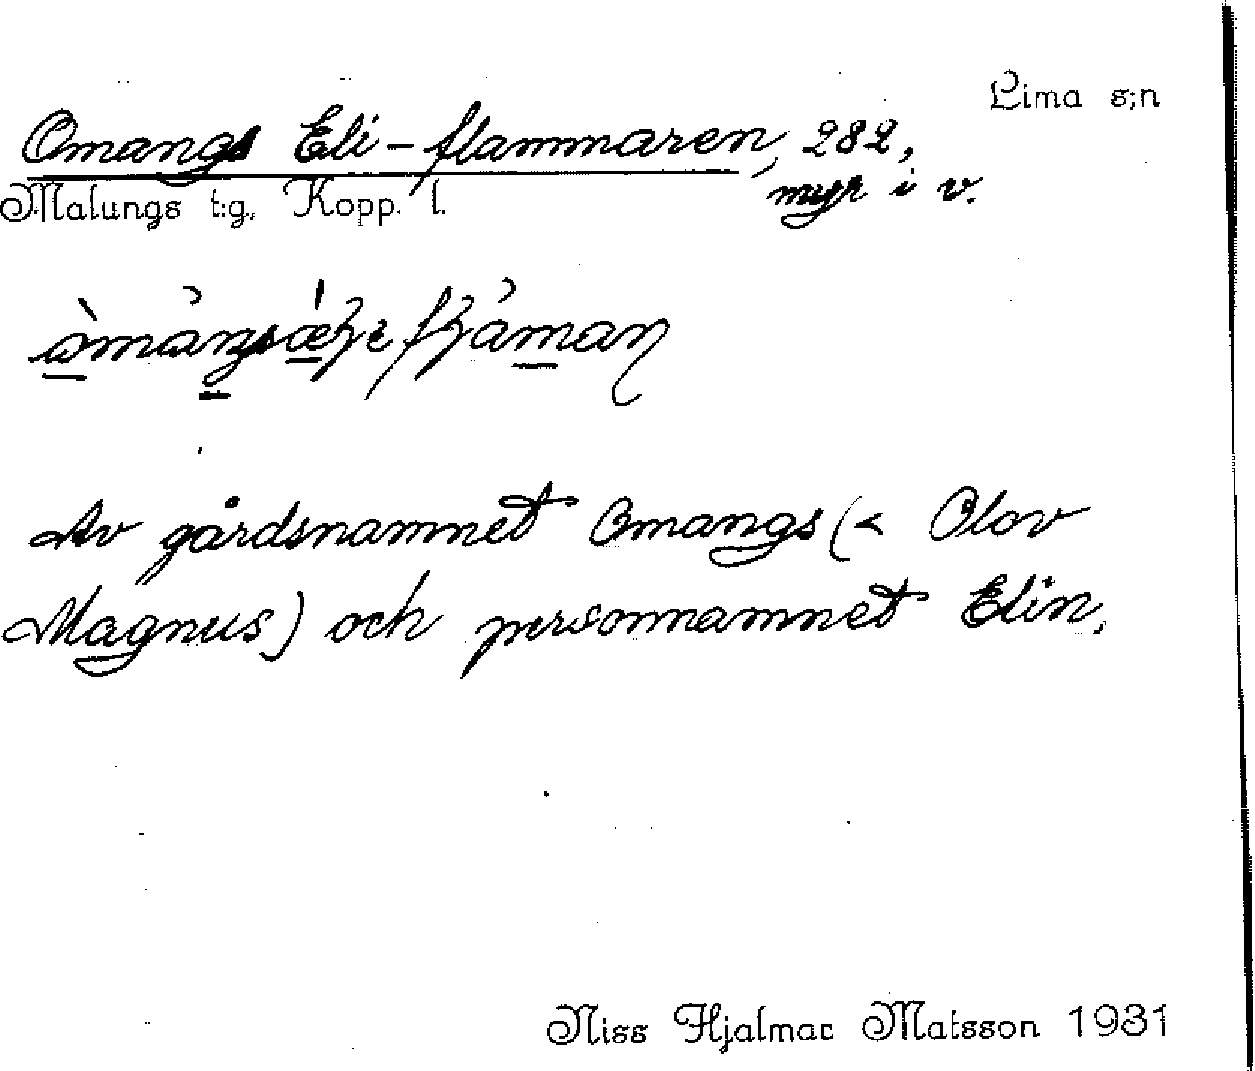 Lima s;n
Omangs Eli-flammaren, 282,
myr i v.
Malungs t:g, Kopp. l.
Av gårdsnamnet Omangs (< Olov
Magnus) och personnamnet Elin.
Niss Hjalmar Matsson 1931